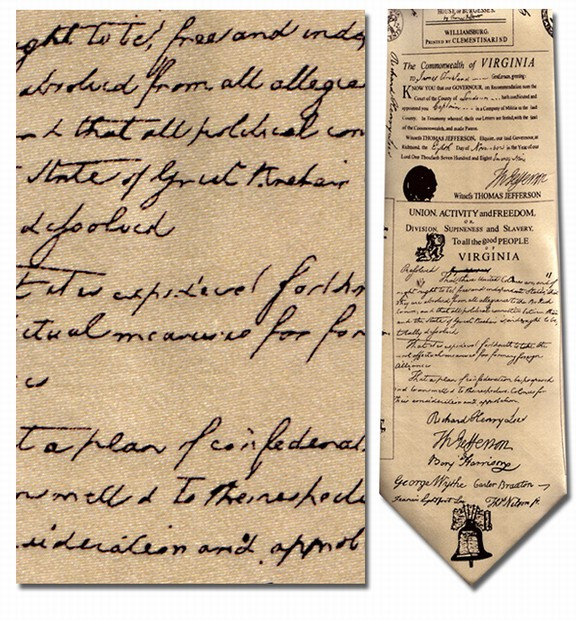 ght to be, free and inde
absolved from all allegia
d that all political con
State of Great Britain
dissolved
t it is expedient forth
ctual measures for for
es
t a plan of confederat
nsmitted to the respecti
sideration and approb
HOUSE OF BURGESSES
WILLIAMSBURG,
PRINTED BY CLEMENTINA RIND
Richard Henry Lee
The Commonwealth of VIRGINIA
To James Greeting:
KNOW YOU that our GOVERNOUR, on Recommendation from the
Court of the County of
appointed you Captain of a Company of Militia in the said
County. In Testimony whereof, these our Letters are Sealed with the
of the Commonwealth, and made Patent.
Witness THOMAS JEFFERSON, Esquire, our said Governour, at
Richmond, the Eighth Day of in the Year of our
Lord One Thousand Seven Hundred and Eighty
Th Jefferson
Witness THOMAS JEFFERSON
UNION, ACTIVITY and FREEDOM,
OR,
DIVISION, SUPINENESS and SLAVERY.
To all the good PEOPLE
OF
VIRGINIA
Resolved
That these United Colonies are and of
right ought to be free and independent States, that
they are absolved from all allegiance to the British
Crown, and that all political connection between them
and the State of Great Britain is and ought to be
totally dissolved
That it is expedient forthwith to take the
most effectual measures for forming foreign
alliances
That a plan of confederation be prepared
and transmitted to the respective Colonies for
their consideration and approbation
Richard Henry Lee
Th Jefferson
Benj Harrison
George Wythe Carter Braxton
Francis Lightfoot Lee Thos Nelson jr